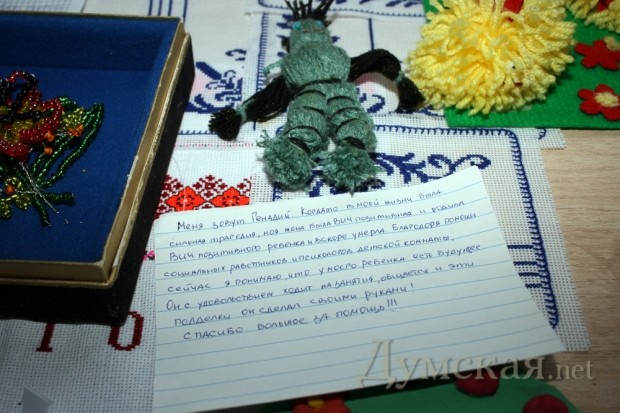 Меня зовут Генадий Когдато в моей жизни была
сильная трагедия, моя жена была ВИЧ позитивная и родила
ВИЧ позитивного ребенка и вскоре умерла. Благодоря помощи
социальных работников и психологов детской комнаты,
сейчас я понимаю, что у моего ребенка есть будущее
Он с удовольствием ходит на занятия, общается и эти
подделки он сделал своими руками!
Спасибо большое за помощь!!!
Думская.net